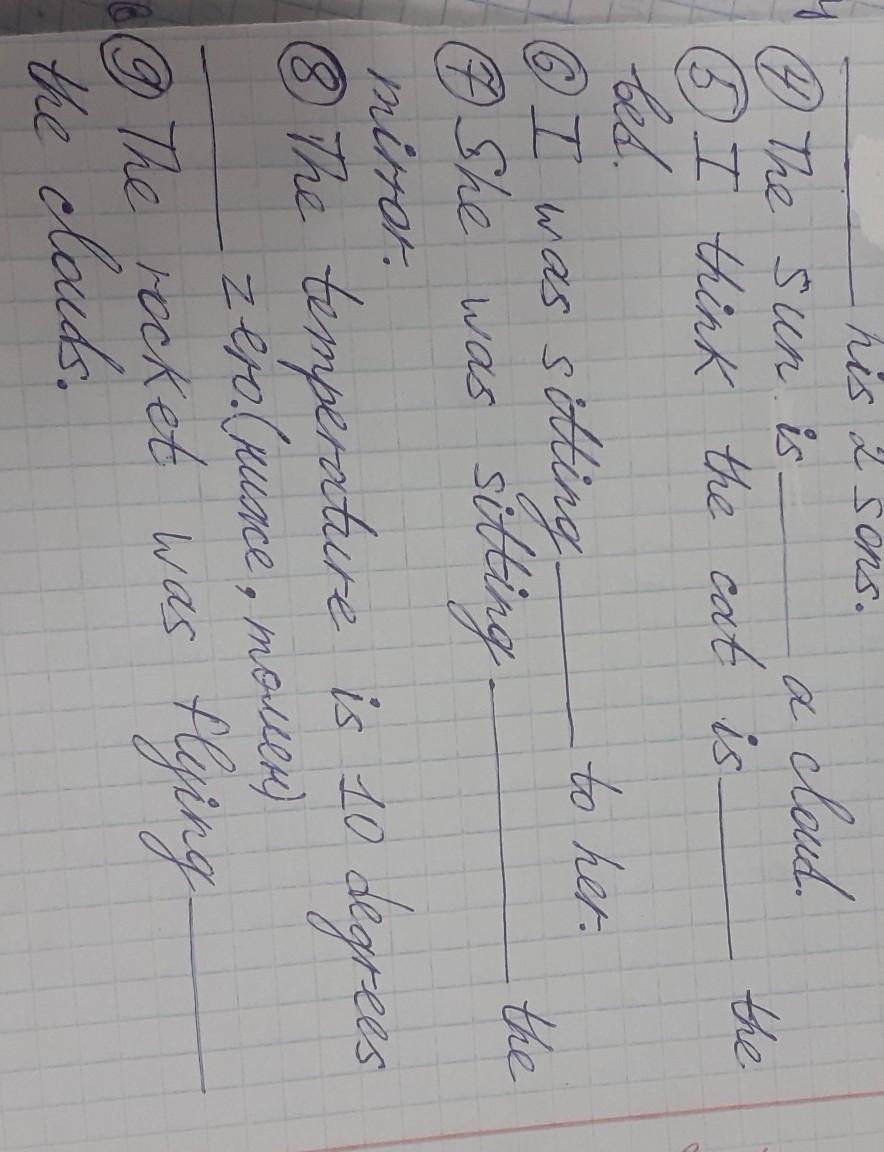 ________ his 2 sons.
④ The sun is ______ a cloud.
⑤ I think the cat is ______ the
bed.
⑥ I was sitting ______ to her.
⑦ She was sitting ________ the
mirror.
⑧ The temperature is 10 degrees
______ zero. (ниже, томен)
⑨ The rocket was flying ______
the clouds.